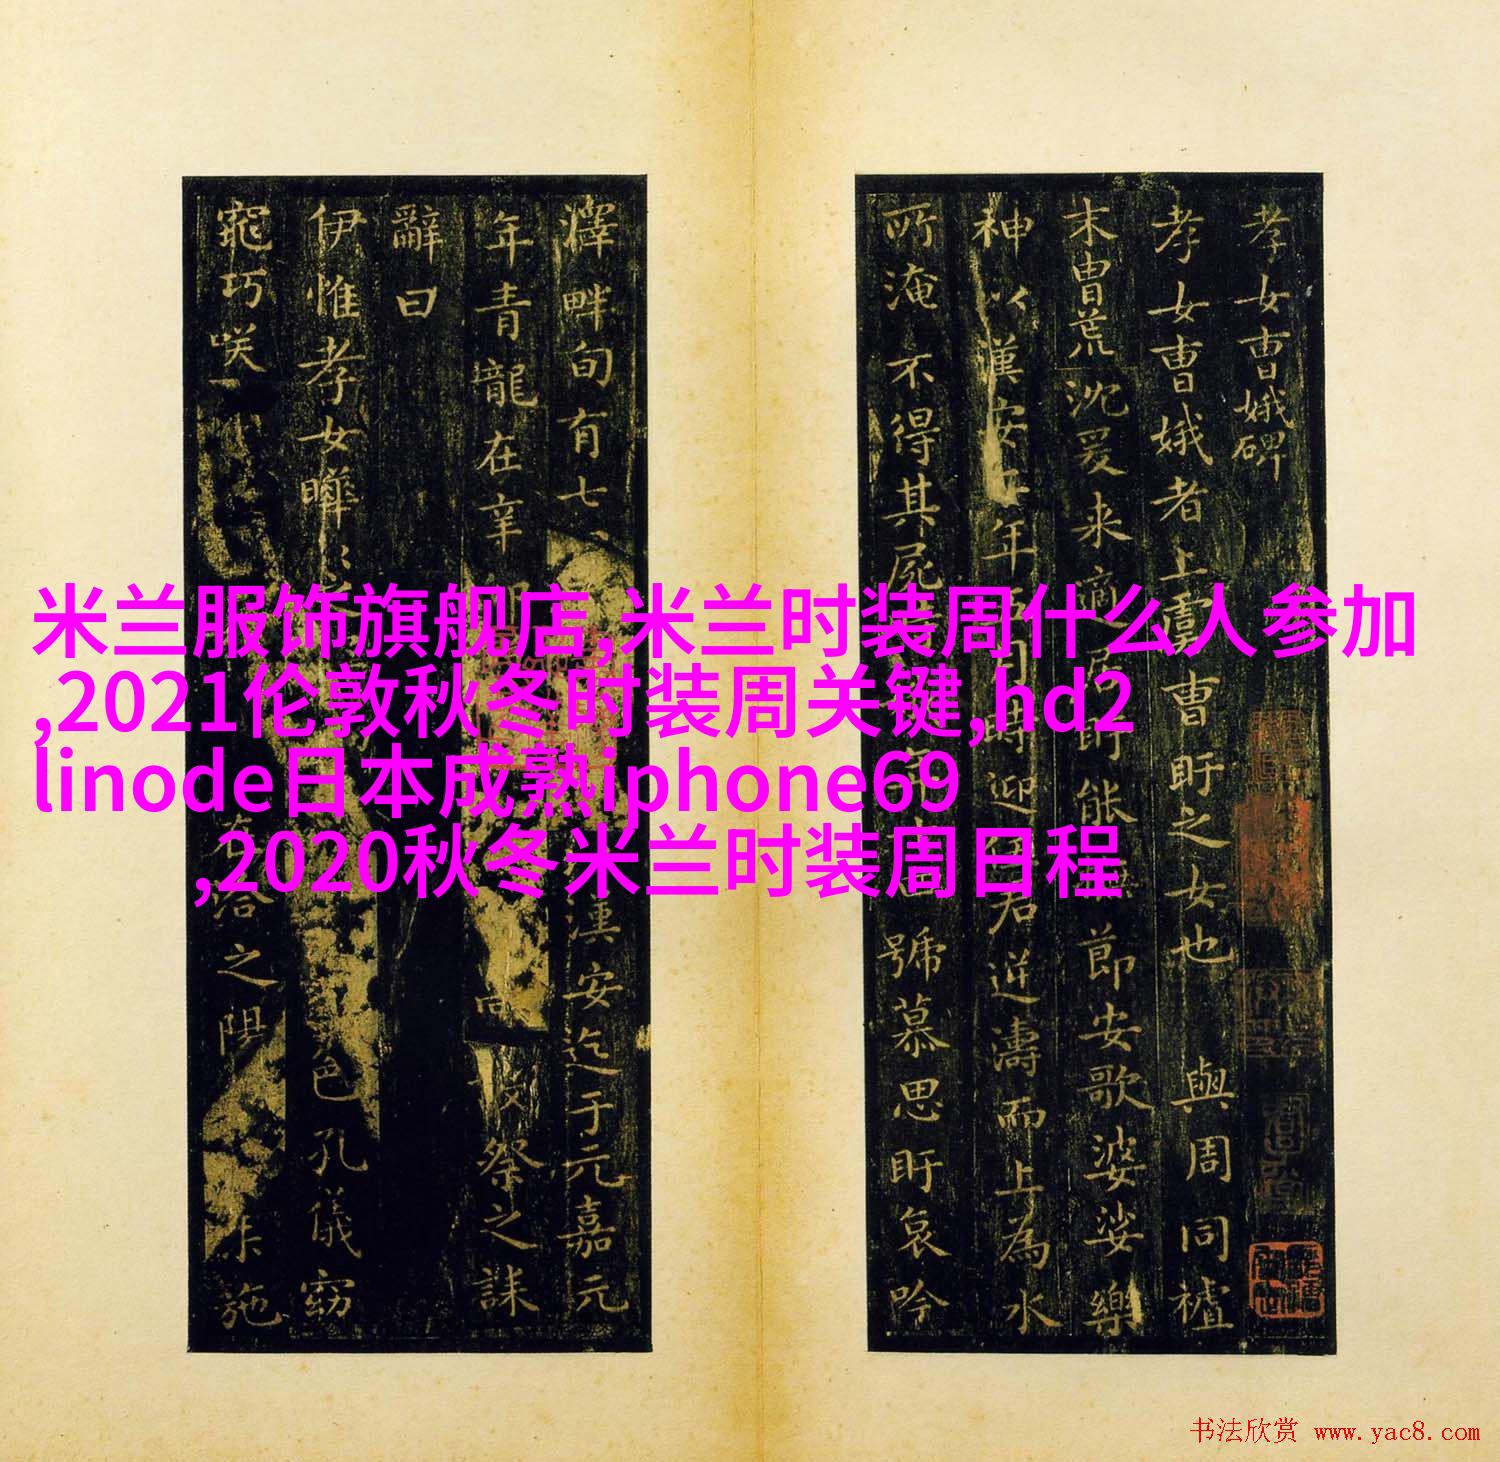 孝女曹娥碑
孝女曹娥者上虞曹盱之女也 與周同禃
末胄荒沈爰来適居 能 節安歌婆娑樂
神以漢安二年五月時迎 君逆濤而上為水
所淹不得其屍 號慕思盱哀吟
澤畔旬有七 漢安迄于元嘉元
年青龍在辛 祭之誄
辭曰
伊惟孝女曄 之 色孔儀窈
窕巧咲 洽之陽 施
米兰服饰旗舰店,米兰时装周什么人参加
,2021伦敦秋冬时装周关键,hd2
linode日本成熟iphone69
,2020秋冬米兰时装周日程
书法欣赏 www.yac8.com